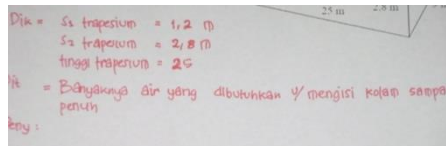 25 m 2.8 m
Dik = S1 trapesium = 1,2 m
S2 trapesium = 2,8 m
tinggi trapesium = 25
Dit = Banyaknya air yang dibutuhkan y/ mengisi kolam sampa
penuh
Peny :